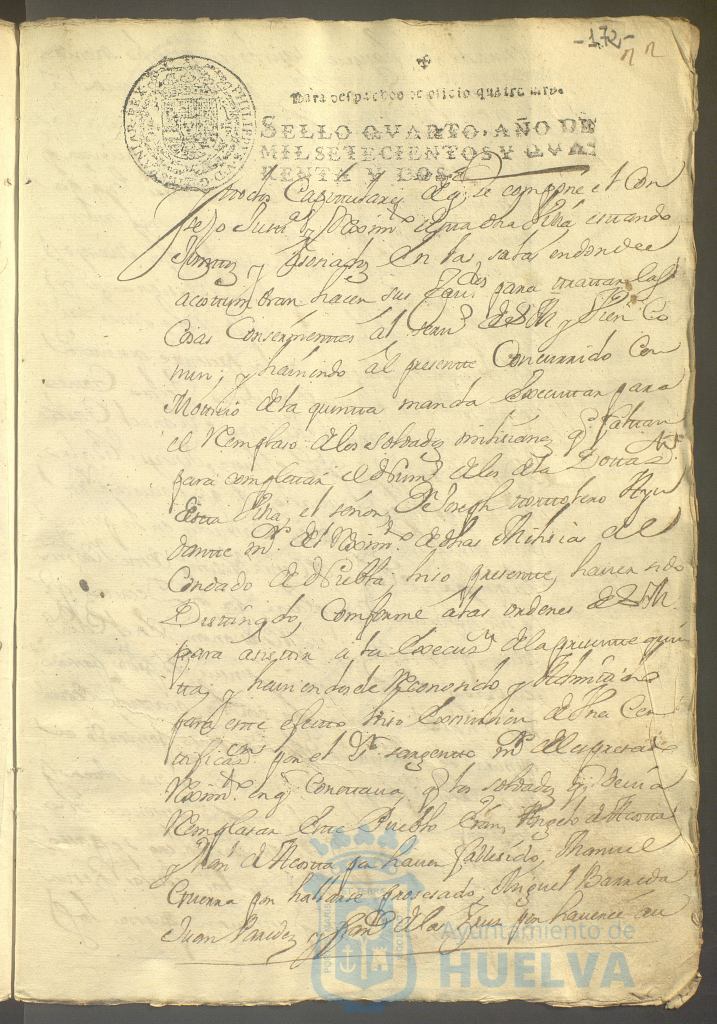 -172-
Para despachos de oficio quatro mrs.
SELLO QVARTO, AÑO DE
MIL SETECIENTOS Y QVA
RENTA Y DOS
Capitulares de q se compone el Con
sejo Justª y Reximº de esta dha Villa estando
Juntos y en la sala en donde
acostumbran hacer sus para trattar las
Cosas Conserni­entes al serv de S M y bien Co
mun; y haviendo al presente Concurrido Con
Motivo de la quinta manda executar para
el Remplaso de los soldados milicianos q faltan
para completar el Num de los de la
Esta Villa, el señor Dn Joseph Ayu
dantte mr del Reximto de dhas Milisias del
Condado de Niebla, hiso presente, haver sido
Destinado, Comforme a las ordenes de S M
para asistir a la execusn de la presente quin
ta, y haviendosele Reconosido y Admitido
para este efecto hiso de Una Cer
tificasn por el Sr sargento mr del expresado
Reximto en q Constava q los soldados q devia
Remplasar este Pueblo Eran, Angelo de Acosta
y Juan de Acosta por haver fallesido, Manuel
Guerra por hallarse prosesado, Miguel Barreda
Juan Paredes y de la Cruz por haverse au
Ayuntamiento de
HUELVA